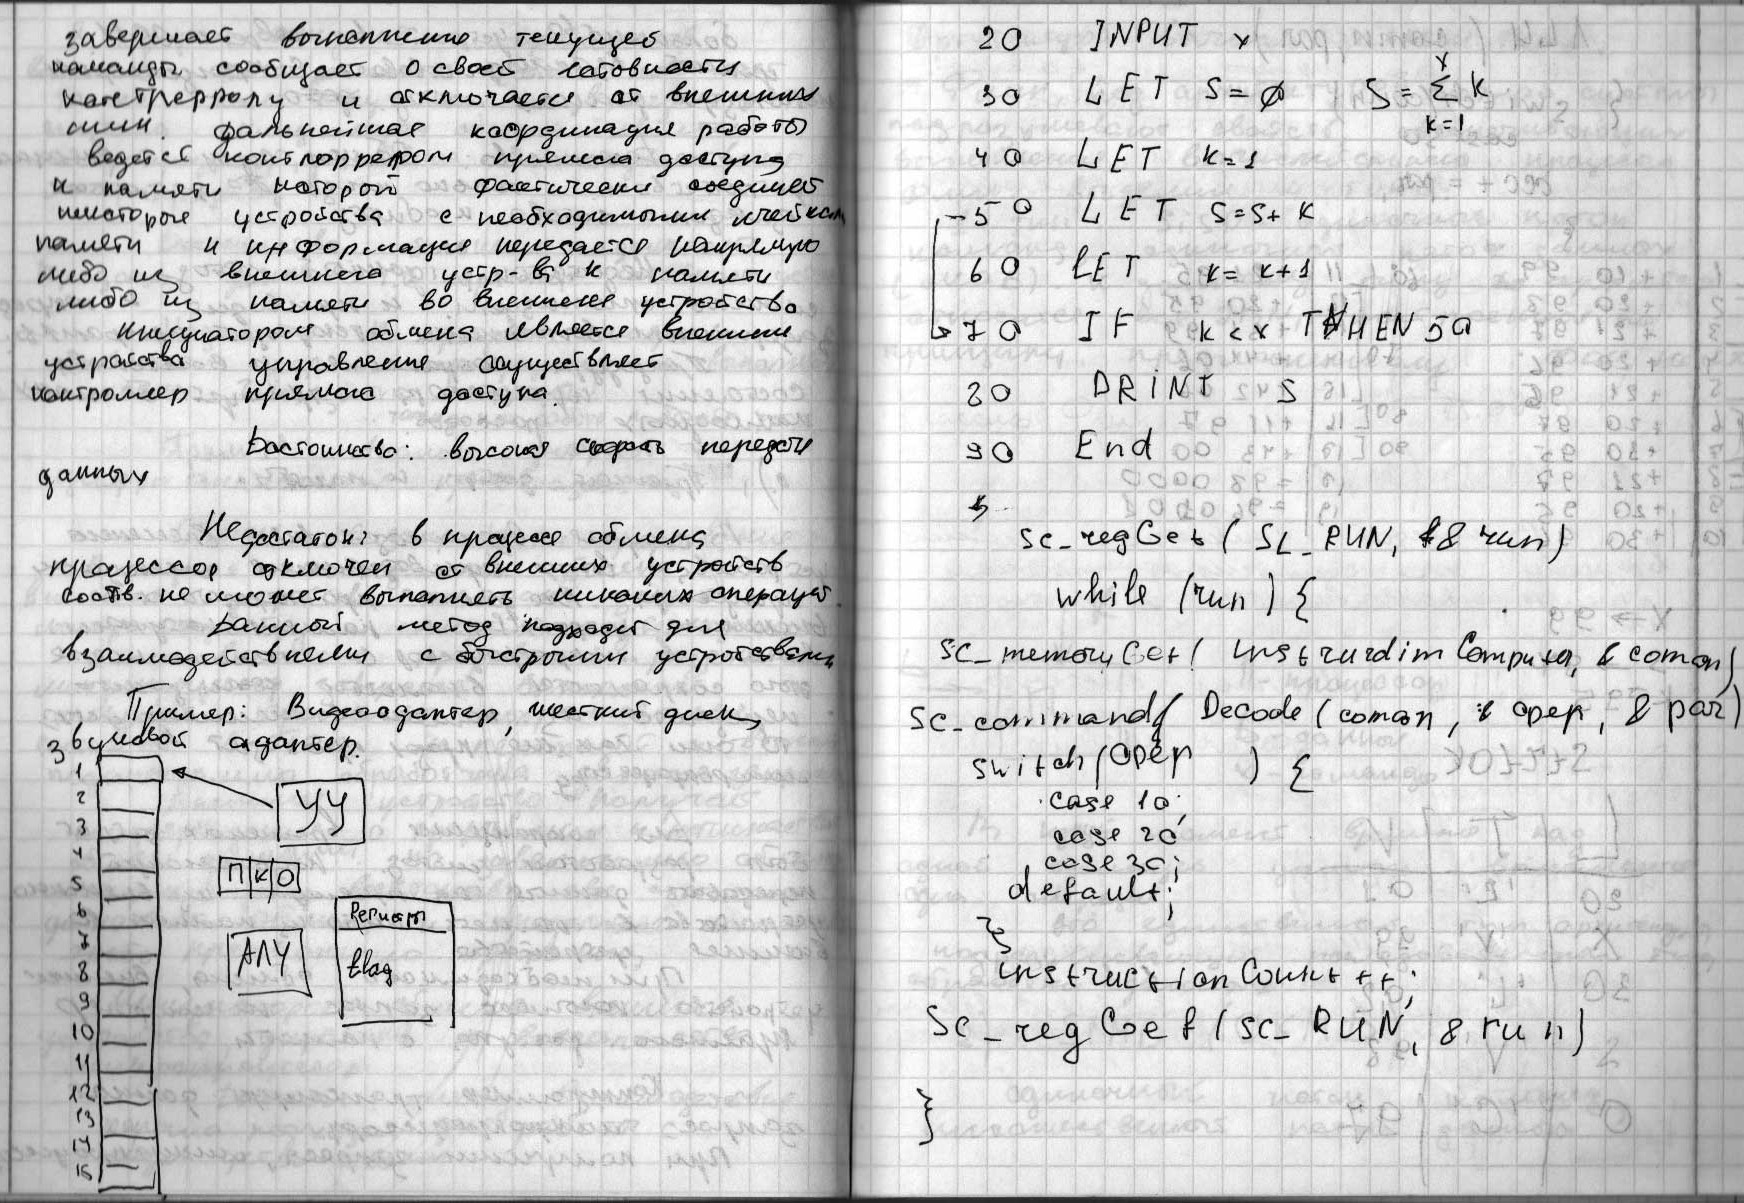 завершает выполнение текущей
команды сообщает о своей готовности
и отключается от внешних
шин. дальнейшая координация работы
ведется прямого доступа
к памяти который фактически соединяет
некоторые устройства с необходимыми ячейками
памяти и информация передается напрямую
либо из внешнего устр-ва к памяти
либо из памяти во внешнее устройство
инициатором обмена является внешнее
устройство управление осуществляет
контроллер прямого доступа.
Достоинство: высокая скорость передачи
данных
Недостаток: в процессе обмена
процессор отключен от внешних устройств
соотв. не может выполнять никаких операций.
Данный метод подходит для
взаимодействия с быстрыми устройствами
Пример: Видеоадаптер, жесткий диск,
звуковой адаптер.
1
2
3
4
5
6
7
8
9
10
11
12
13
14
15
УУ
П К О
АЛУ
Регистры
flag
20 INPUT x
30 LET S=∅ S = x Σ k k=1
40 LET k=1
50 LET S=S+k
60 LET k=k+1
70 IF k<x THEN 50
80 PRINT S
90 End
sc_regGet(SC_RUN, &run)
while (run) {
sc_memoryGet( Computer, &coman)
sc_command Decode(coman, & opep, & par)
switch(opep) {
case 10;
case 20;
case 30;
default;
}
instructionCount++;
Sc_regGet(sc_RUN, &run)
}